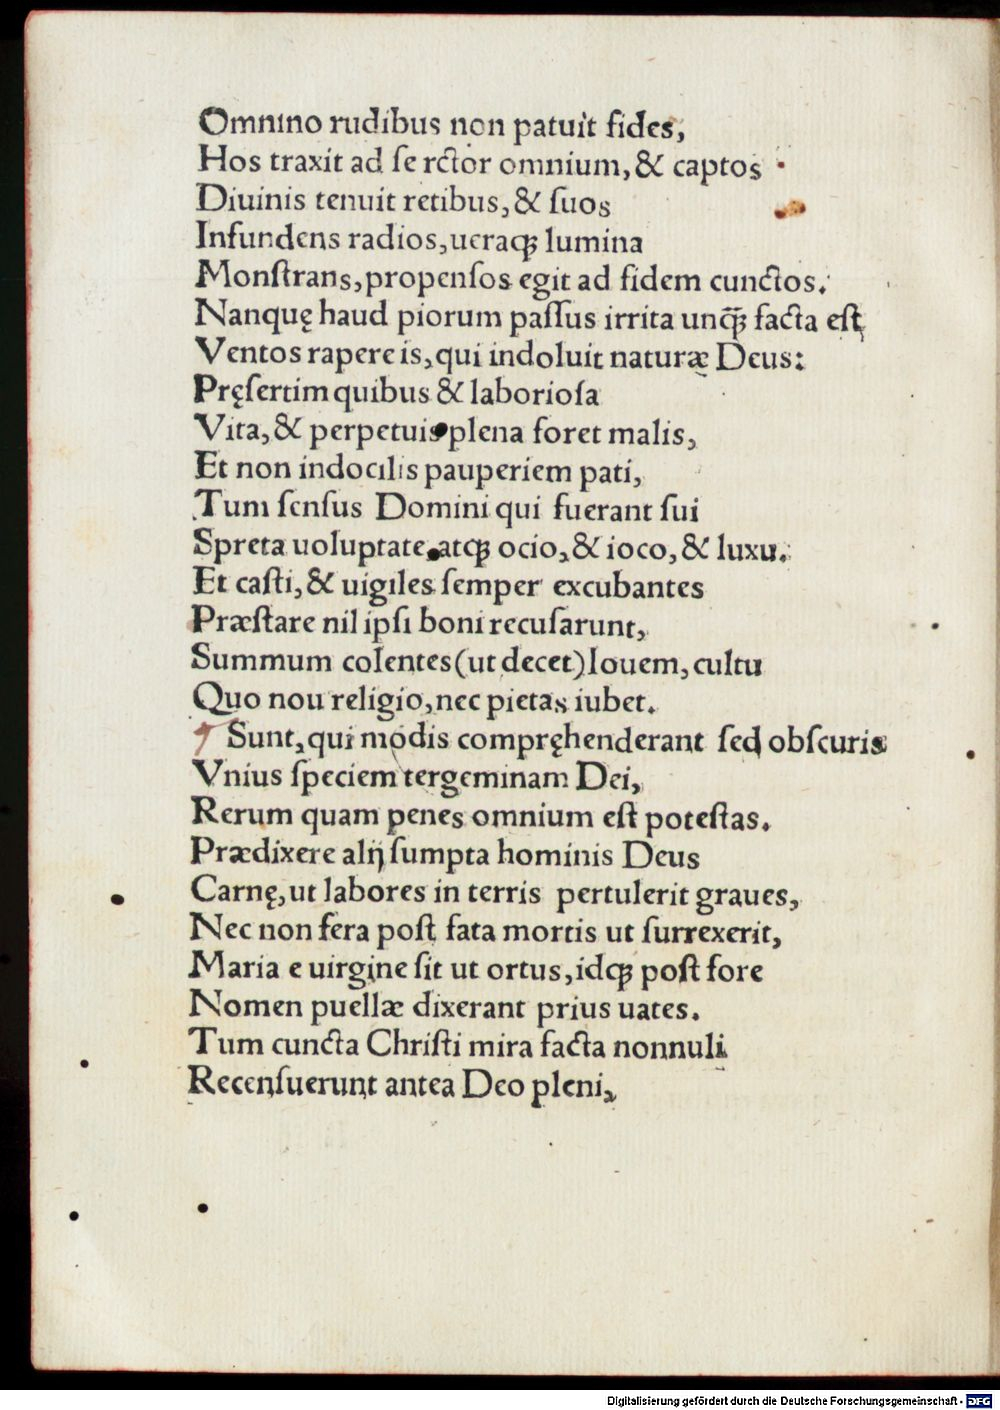 Omnino rudibus non patuit fides,
Hos traxit ad ſe rctor omnium, & captos
Diuinis tenuit retibus, & ſuos
Infundens radios, ueraqꝫ lumina
Monſtrans, propenſos egit ad fidem cunctos.
Nanquę haud piorum paſſus irrita unq̃ꝫ facta eſt
Ventos rapere is, qui indoluit naturæ Deus:
Pręſertim quibus & laborioſa
Vita, & perpetuis plena foret malis,
Et non indocilis pauperiem pati,
Tum ſenſus Domini qui fuerant ſui
Spreta uoluptate, atqꝫ ocio, & ioco, & luxu.
Et caſti, & uigiles ſemper excubantes
Præſtare nil ipſi boni recuſarunt,
Summum colentes (ut decet) Iouem, cultu
Quo nou religio, nec pietas iubet.
¶ Sunt, qui modis compręhenderant ſed obſcuris
Vnius ſpeciem tergeminam Dei,
Rerum quam penes omnium eſt poteſtas.
Prædixere alij ſumpta hominis Deus
Carnę, ut labores in terris pertulerit graues,
Nec non fera poſt fata mortis ut ſurrexerit,
Maria e uirgine ſit ut ortus, idqꝫ poſt fore
Nomen puellæ dixerant prius uates.
Tum cuncta Chriſti mira facta nonnuli
Recenſuerunt antea Deo pleni,
Digitalisierung gefördert durch die Deutsche Forschungsgemeinschaft - DFG